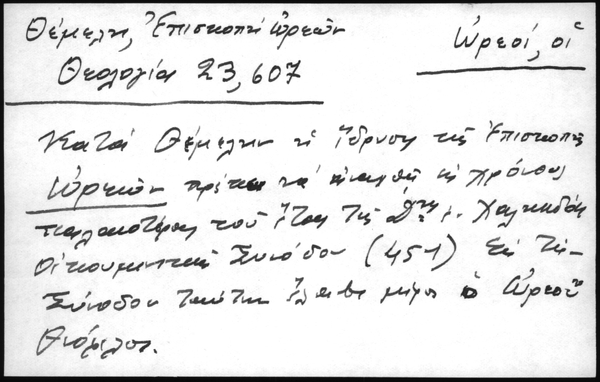 Θέμελη, Ἐπισκοπή Ὠρεῶν
Θεολογία 23, 607
Ὠρεοί, οἱ
Κατά Θέμελην ἡ ἵδρυση τῆς Ἐπισκοπῆς
Ὠρεῶν πρέπει νά ἀναχθῇ εἰς χρόνους
παλαιοτέρους τοῦ ἔτους τῆς Δ΄ Χαλκηδόν
Οἰκουμενικῆς Συνόδου (451) Εἰς τήν
Σύνοδον ταύτην ἔλαβε μέρος ὁ Ὠρεοῦ
Θεόφιλος.